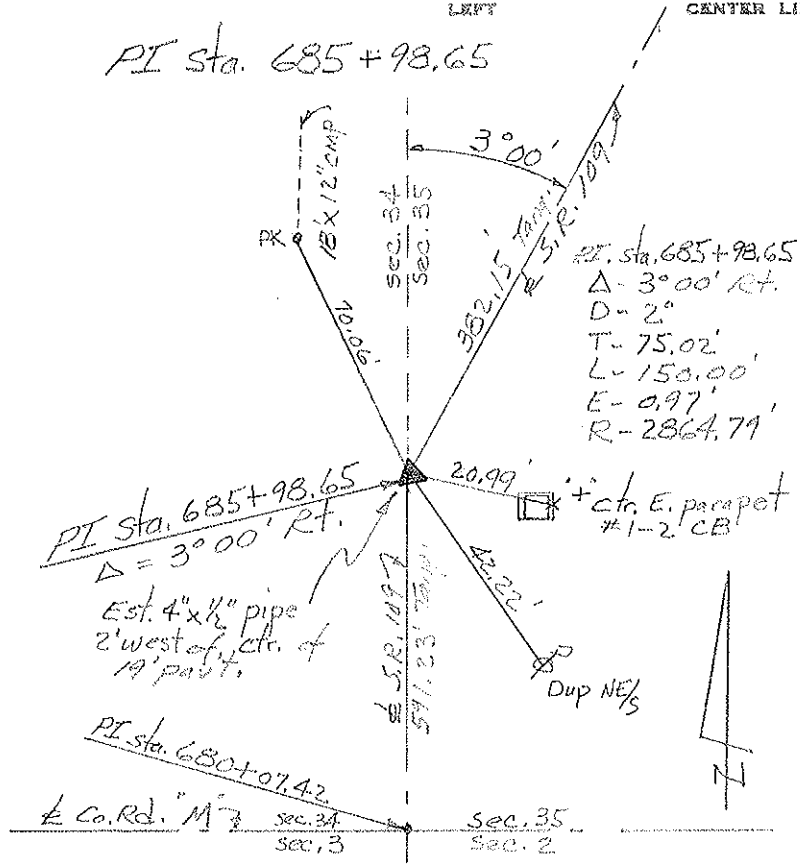 LEFT
CENTER LI
PI sta. 685+98.65
3°00'
18'x12" CMP
sec. 34
sec. 35
382.15' Tang.
℄ S.R. 109
PK
70.06'
PI. sta. 685+98.65
Δ - 3°00' Rt.
D - 2°
T - 75.02'
L - 150.00'
E - 0.97'
R - 2864.79'
20.99'
"+" ctr. E. parapet
#1-2 CB
PI sta. 685+98.65
Δ = 3°00' Rt.
42.22'
Est. 4"x1/2" pipe
2' west of ctr. of
19' pav't.
℄ S.R. 109
591.23' Tang.
Dup NE/S
N
PI sta. 680+07.42
℄ Co. Rd. "M"
sec. 34
sec. 35
sec. 3
sec. 2